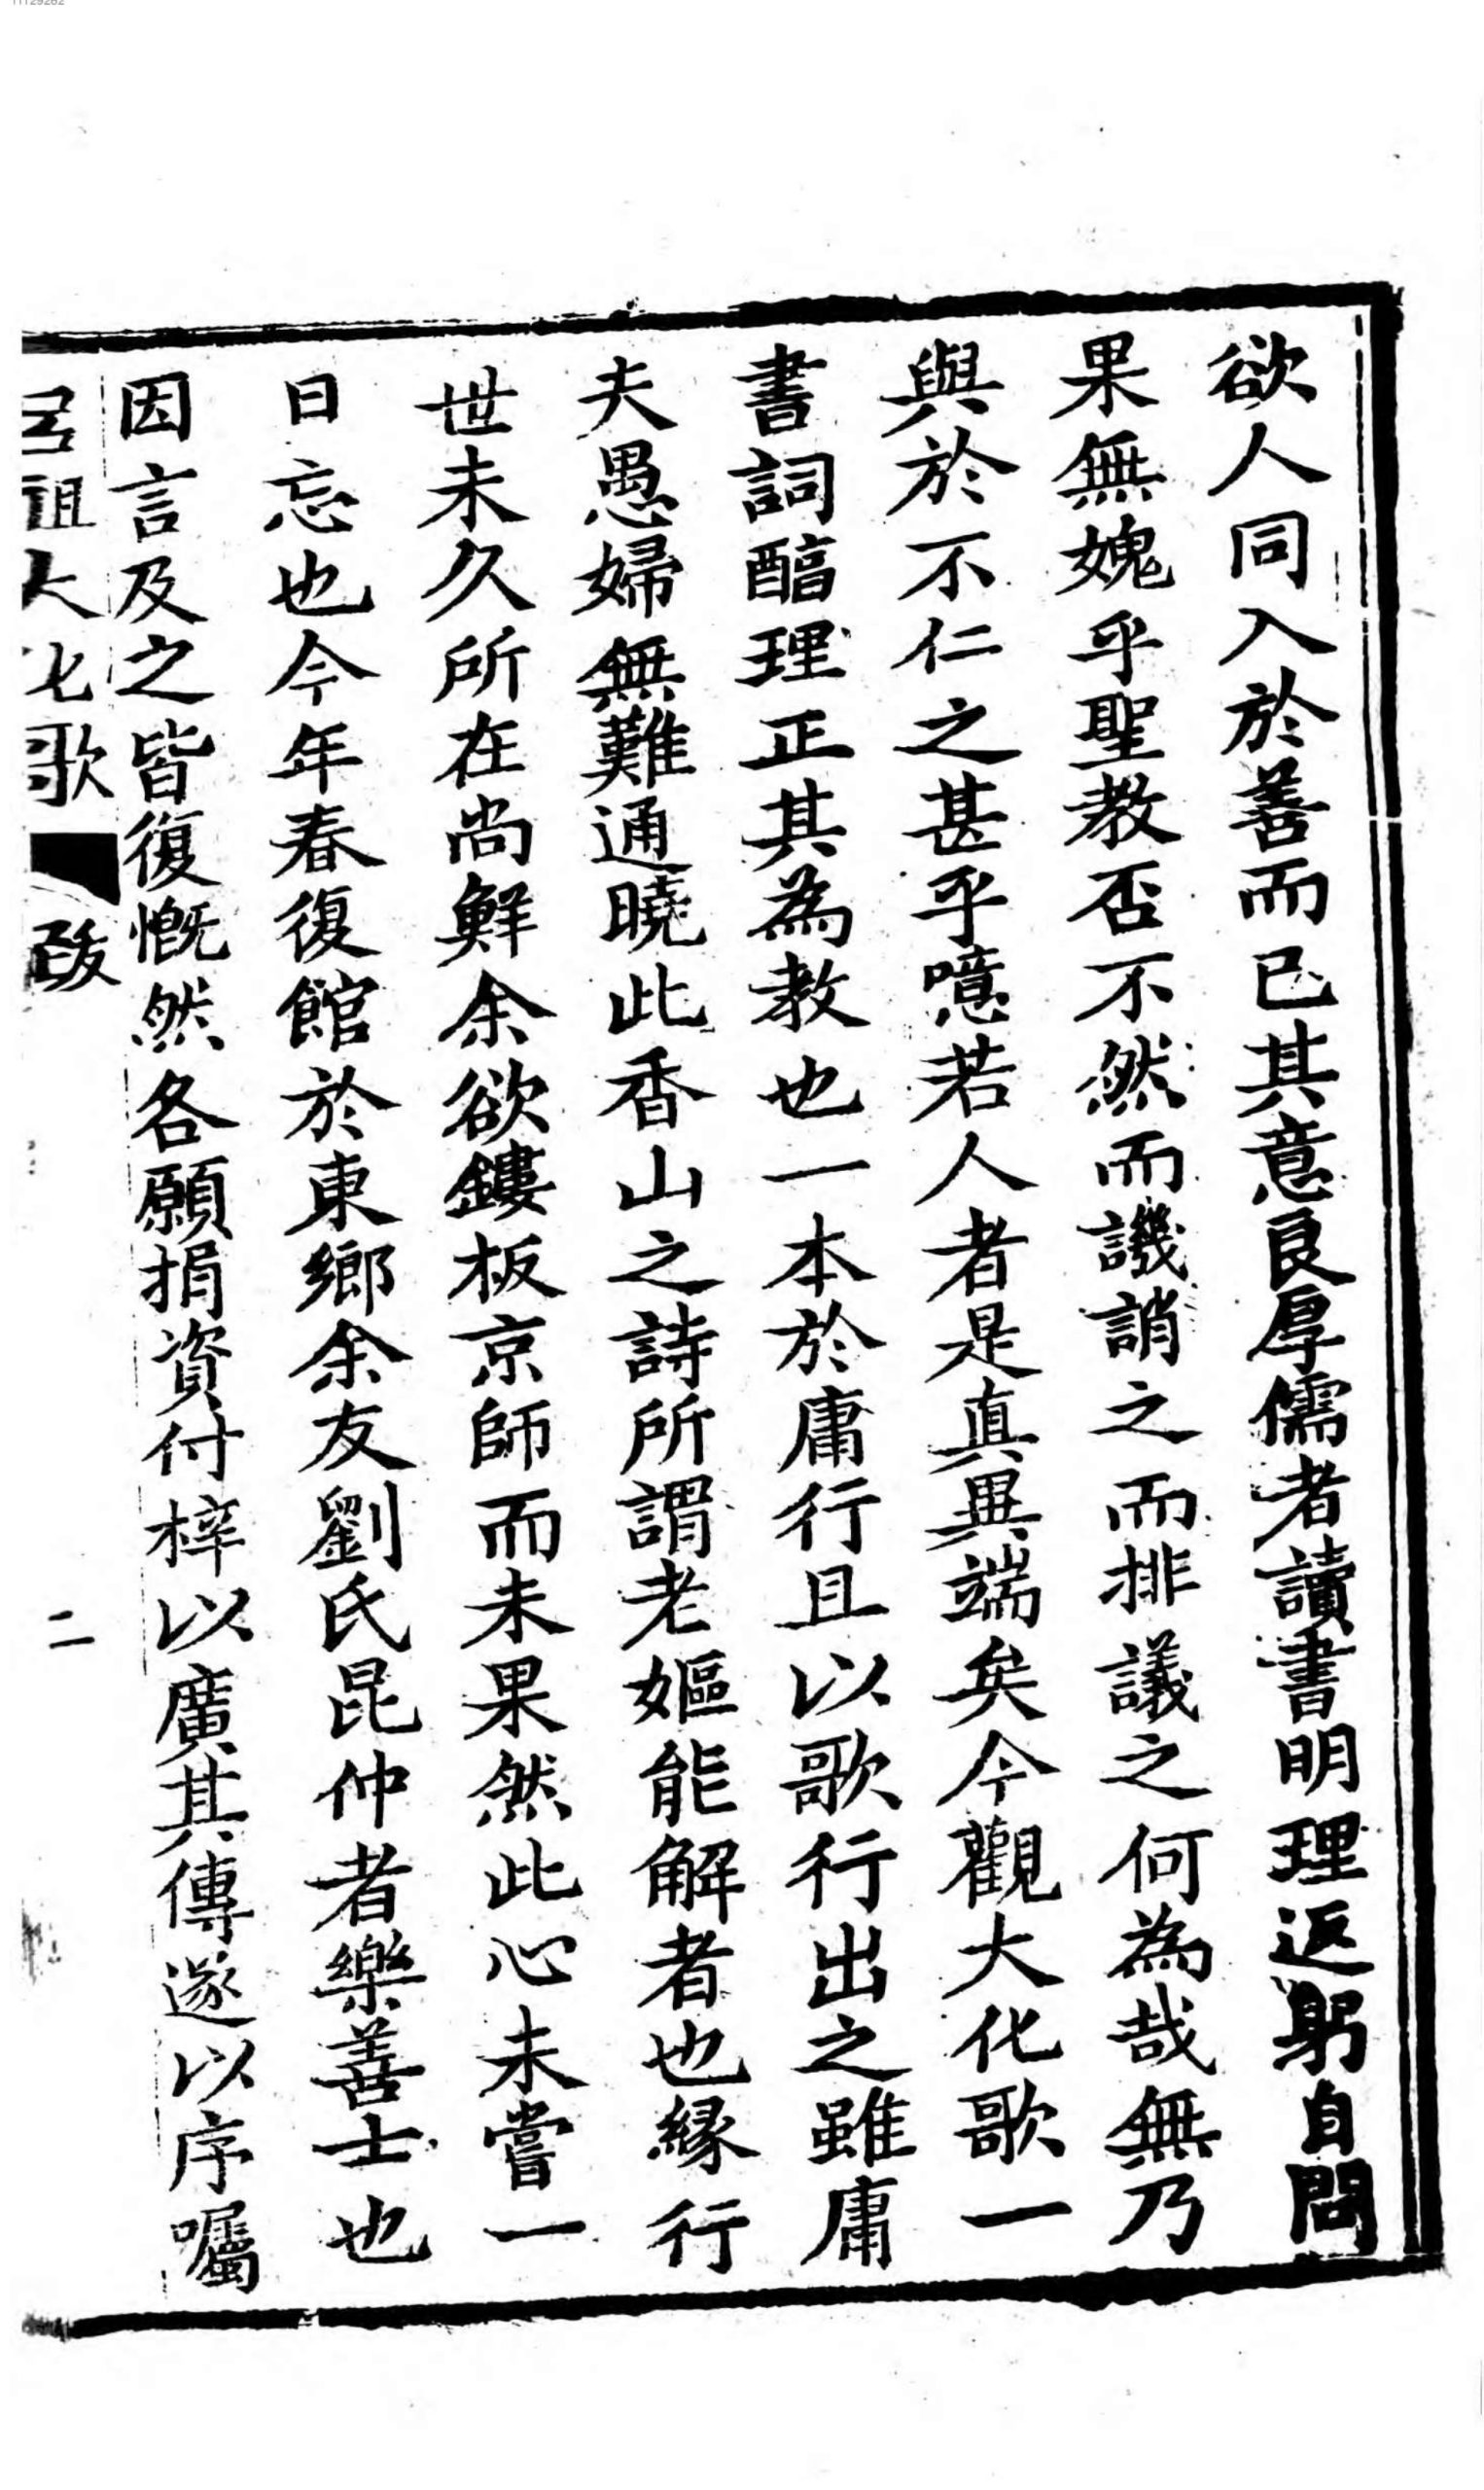 欲人同入於善而已其意良厚儒者讀書明理返躬自問
果無媿乎聖教否不然而譏誚之而排議之何為哉無乃
與於不仁之甚乎噫若人者是真異端矣今觀大化歌一
書詞醕理正其為教也一本於庸行且以歌行出之雖庸
夫愚婦無難通曉此香山之詩所謂老嫗能解者也緣行
世未久所在尚鮮余欲鏤板京師而未果然此心未嘗一
日忘也今年春復館於東鄉余友劉氏昆仲者樂善士也
因言及之皆復慨然各願捐資付梓以廣其傳遂以序囑
呂祖大化歌 跋
二